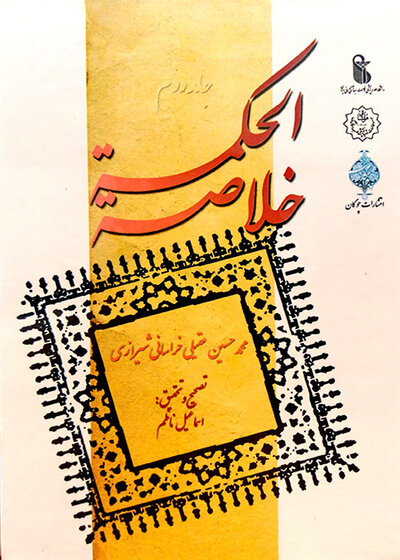 جلد دوم
خلاصة الحكمة
انتشارات چوگان
محمد حسین عقیلی خراسانی شیرازی
تصحیح و تحقیق:
اسماعیل ناظم